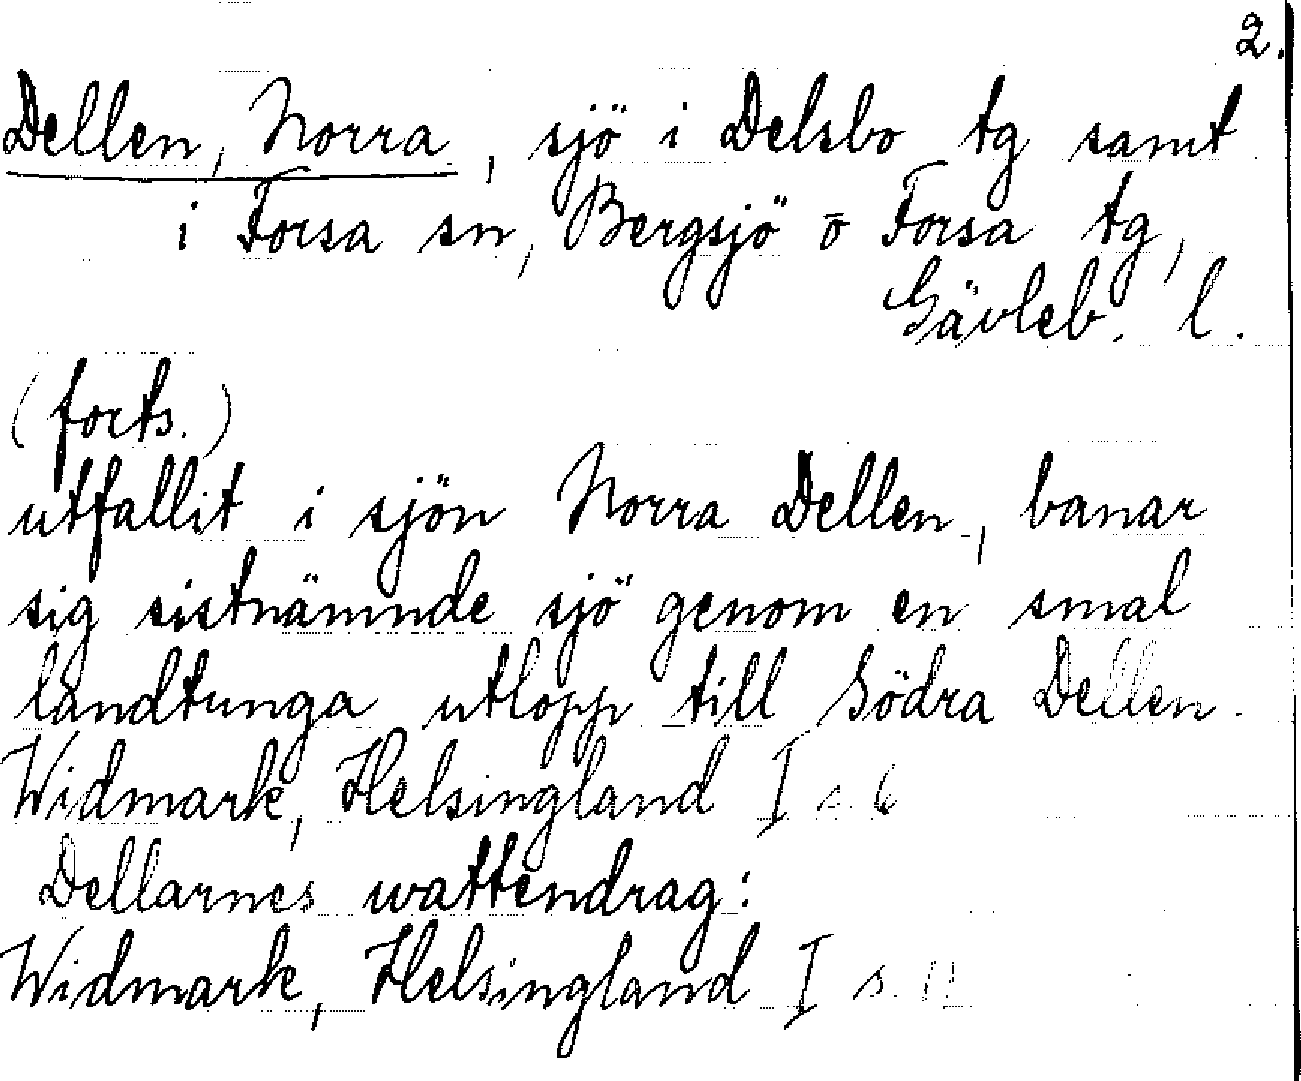 2.
Dellen, Norra, sjö i Delsbo tg samt
i Forsa sn, Bergsjö o Forsa tg,
Gävleb. l.
(forts.)
utfallit i sjön Norra Dellen, banar
sig sistnämnde sjö genom en smal
landtunga utlopp till Södra Dellen.
Widmark, Helsingland I s. 6
Dellarnes wattendrag:
Widmark, Helsingland I s. 11